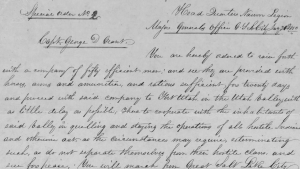 Special order No 2
Head Quarters Nauvoo Legion
Major Generals Office G.S.L. City
Capt. George D. Grant
You are hereby ordered to come forth
with a company of fifty efficient men; and see they are provided with
horses arms and ammunition and rations sufficient for twenty days
and proceed with said company to Fort Utah in the Utah Valley with
as little delay as possible, there to cooperate with the inhabitants of
said Valley in quelling and staying the operations of all hostile Indians
and otherwise act, as the circumstances may require, exterminating
such, as do not separate themselves from their hostile clans and
sue for peace. You will march from Great Salt Lake City